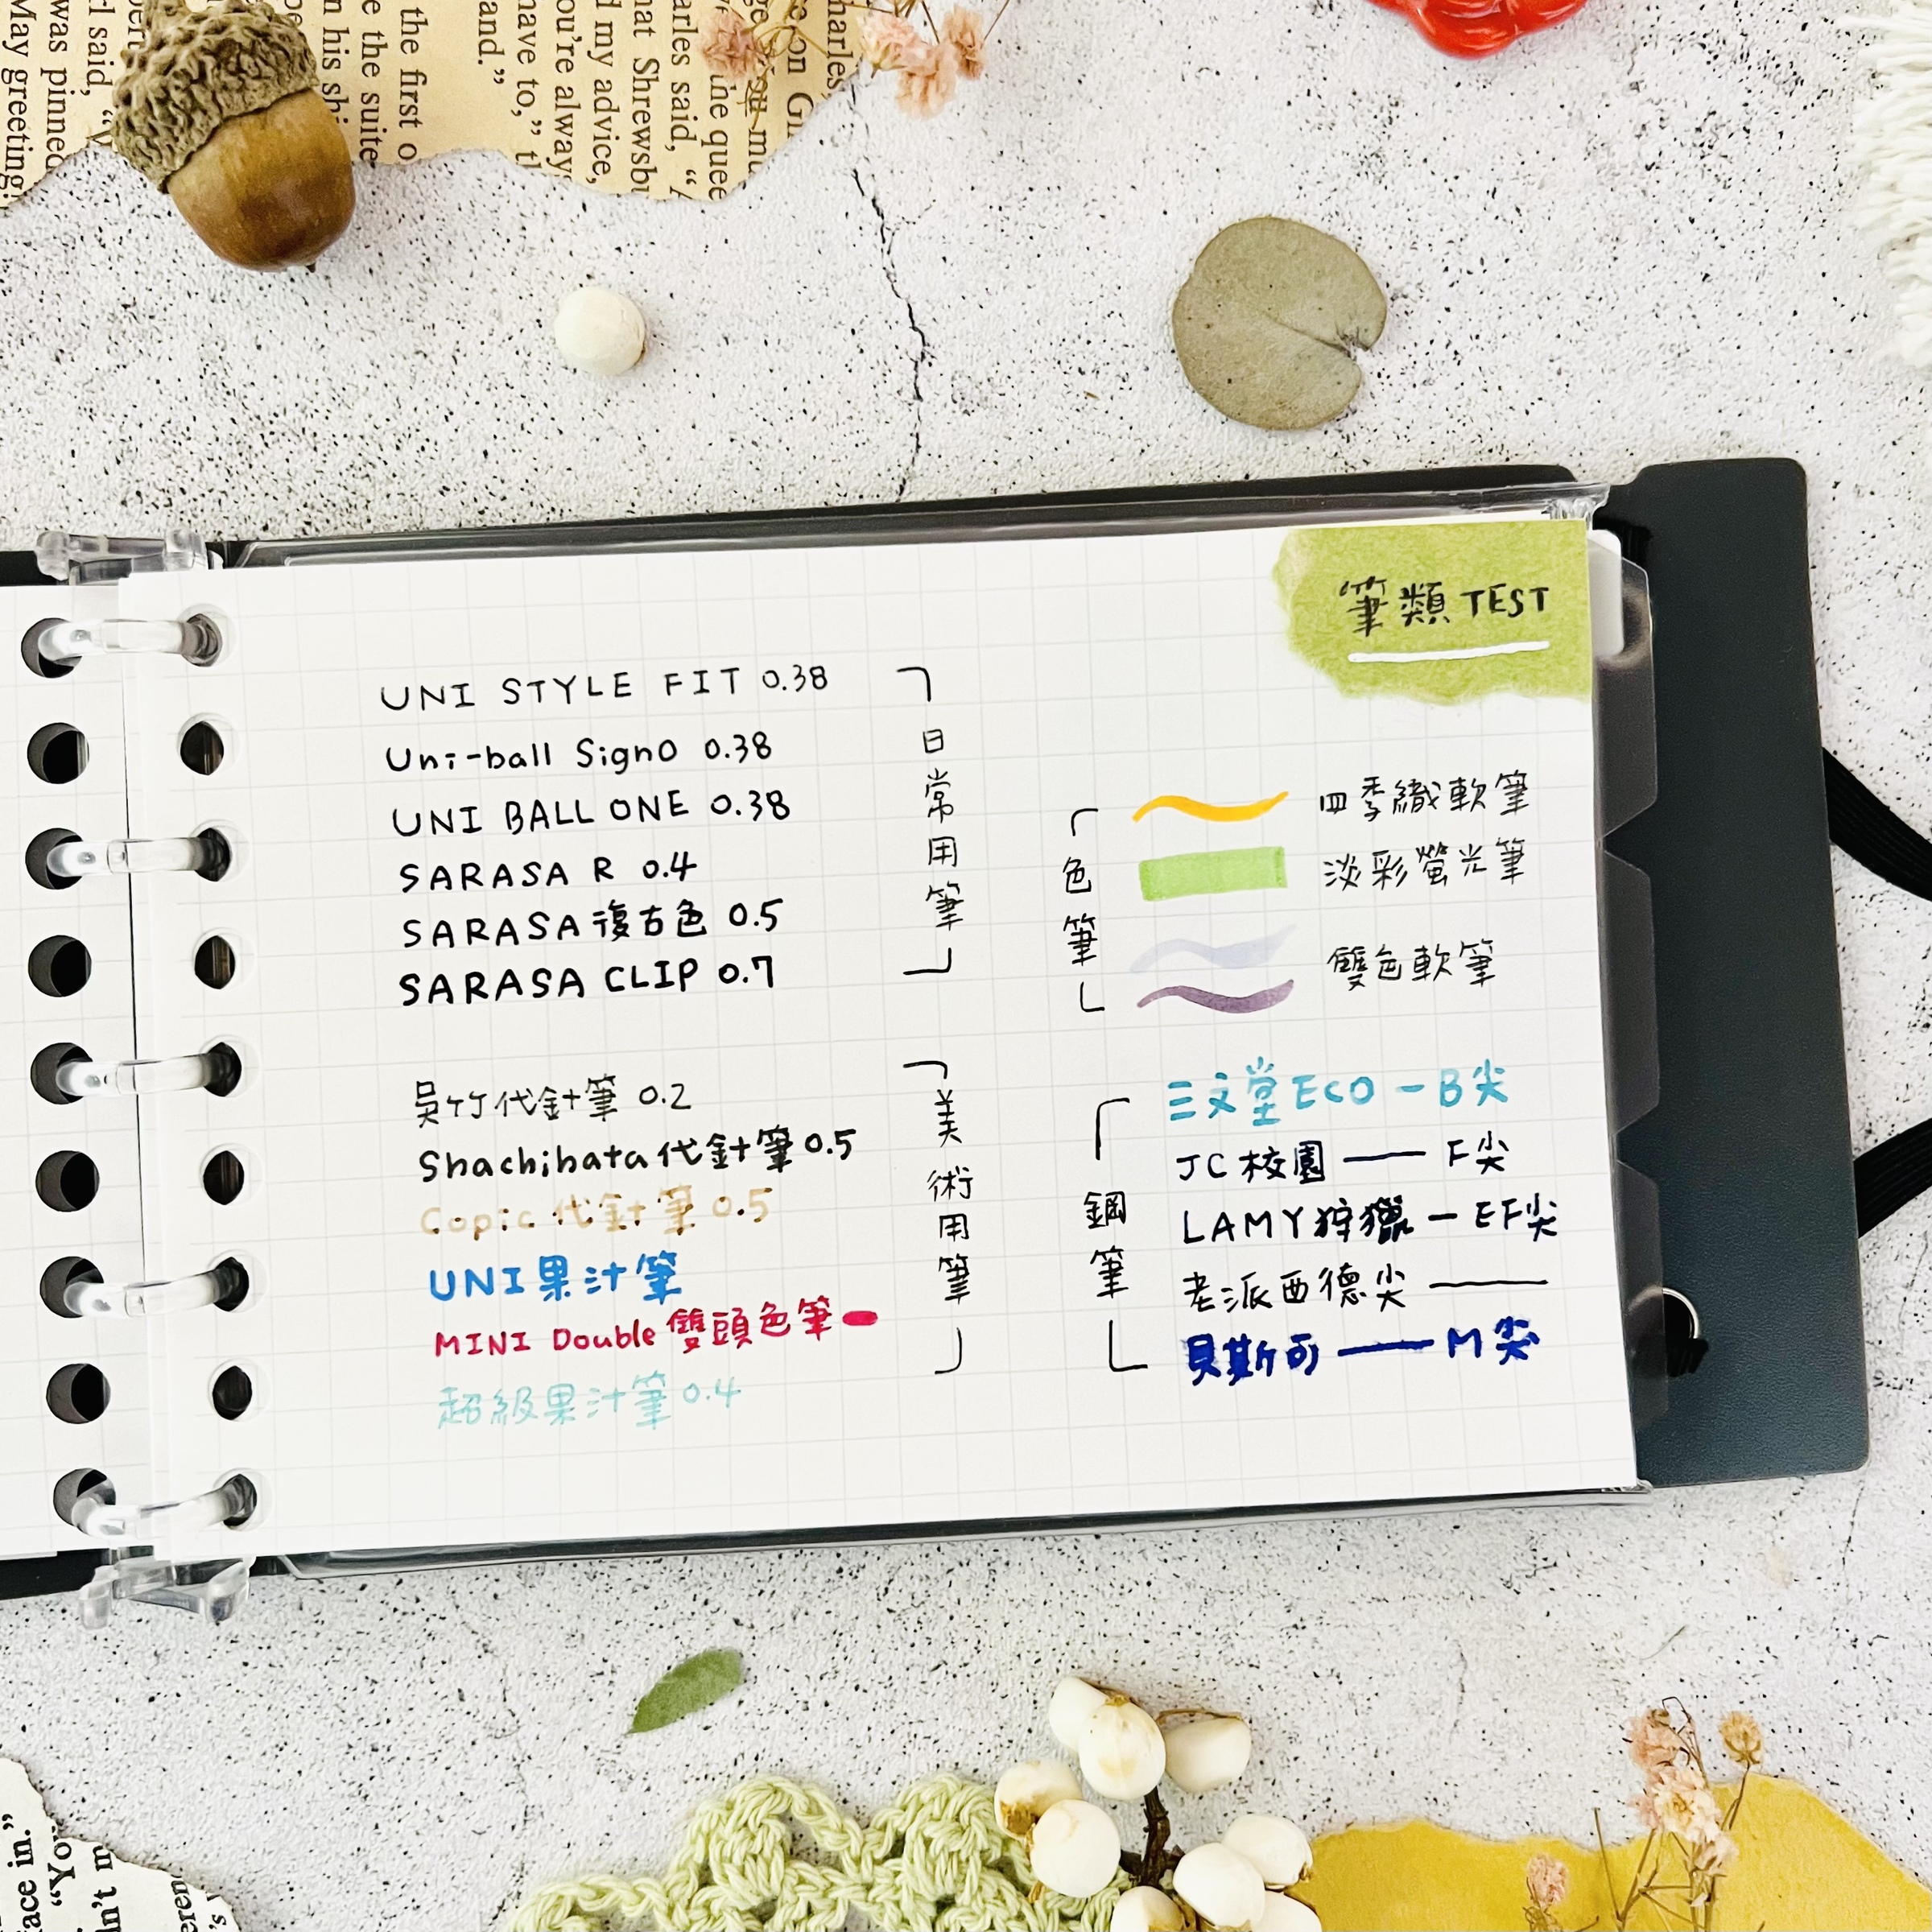 the first o
e the suite
n his shi
was pinned
May greeting
have to,” th
and.”
ou’re always
d my advice,
hat Shrewsbu
arles said, “
the quee
harles,
筆類 TEST
UNI STYLE FIT 0.38
Uni-ball Signo 0.38
UNI BALL ONE 0.38
SARASA R 0.4
SARASA 復古色 0.5
SARASA CLIP 0.7
日常用筆
吳竹代針筆 0.2
Shachihata 代針筆 0.5
Copic 代針筆 0.5
UNI 果汁筆
MINI Double 雙頭色筆
超級果汁筆 0.4
美術用筆
色筆
四季織軟筆
淡彩螢光筆
雙色軟筆
鋼筆
三文堂 ECO — B尖
JC 校園 — F尖
LAMY 狩獵 — EF尖
老派西德尖 —
貝斯可 — M尖
face in.”
“You
n’t m